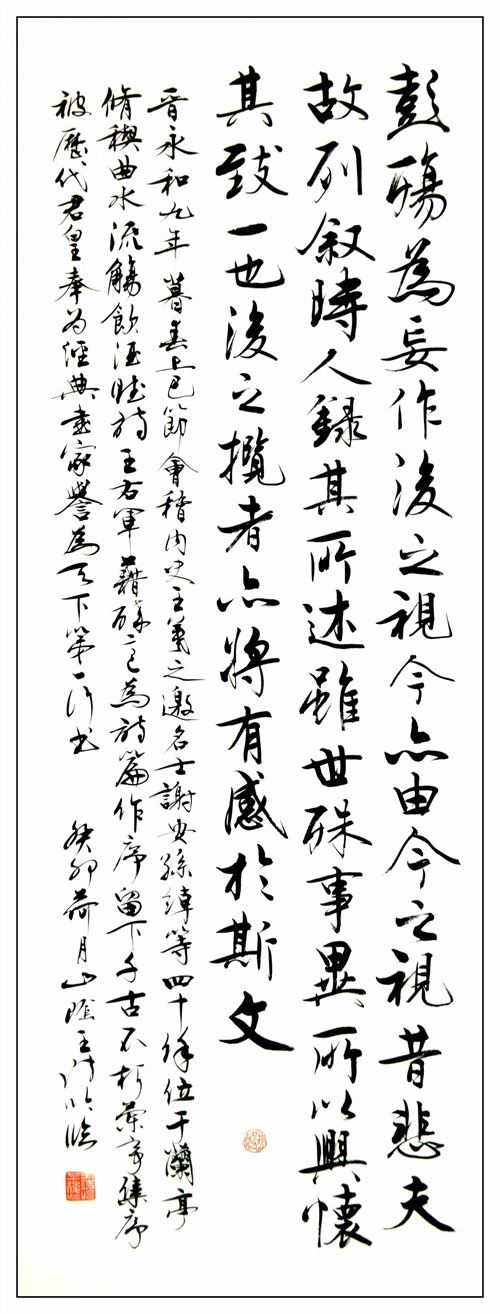 彭殤為妄作後之視今亦由今之視昔悲夫
故列叙時人録其所述雖世殊事異所以興懷
其致一也後之攬者亦將有感於斯文
晉永和九年暮春上巳節會稽内史王羲之邀名士謝安孫綽等四十餘位于蘭亭
脩稧曲水流觴飲酒賦詩王右軍藉酔意為詩篇作序留下千古不朽蘭亭集序
被歷代君皇奉為經典書家譽為天下第一行书
癸卯荷月山陰王